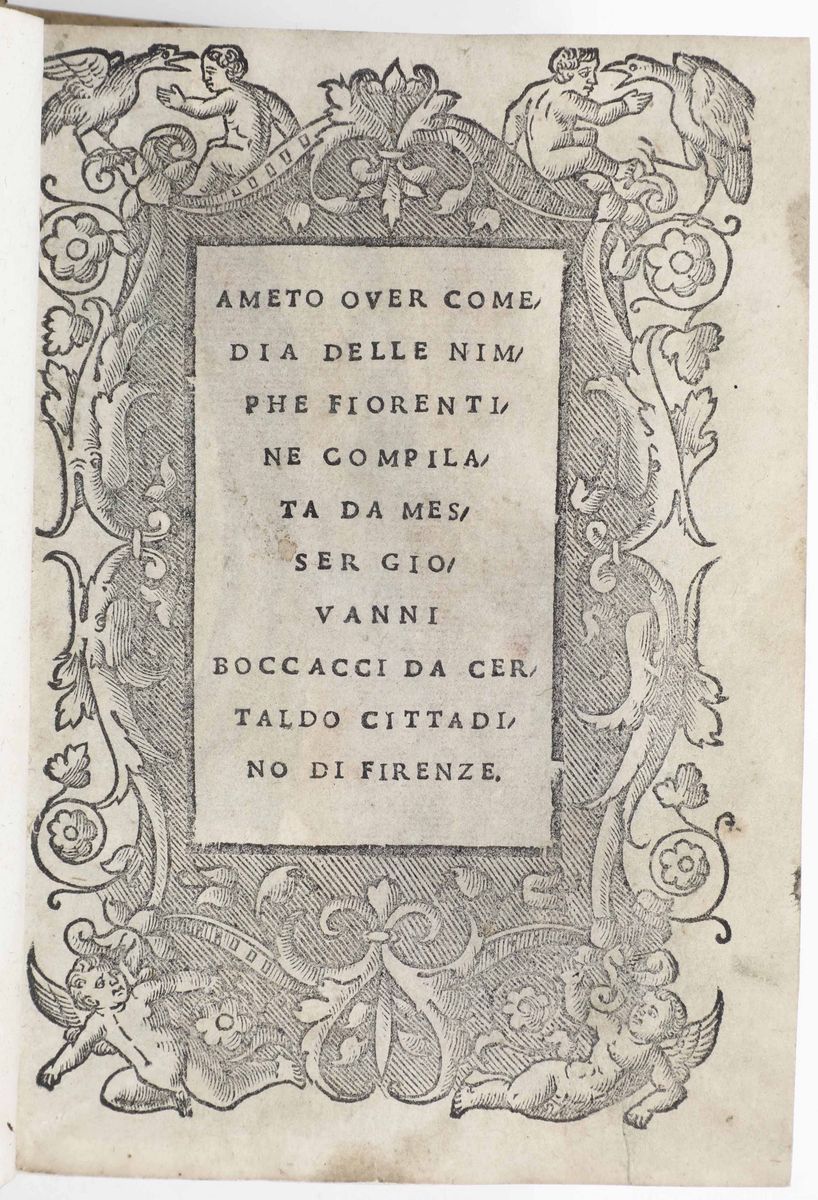 AMETO OVER COME/
DIA DELLE NIM/
PHE FIORENTI/
NE COMPILA/
TA DA MES/
SER GIO/
VANNI
BOCCACCI DA CER/
TALDO CITTADI/
NO DI FIRENZE.